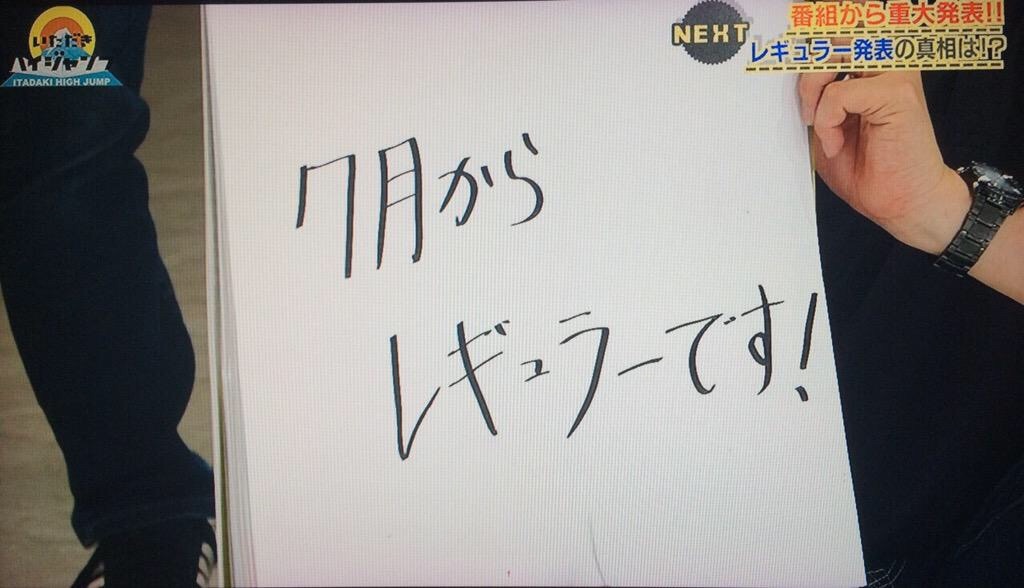 いただき
ハイジャンプ
ITADAKI HIGH JUMP
NEXT
番組から重大発表!!
レギュラー発表の真相は!?
7月から
レギュラーです!